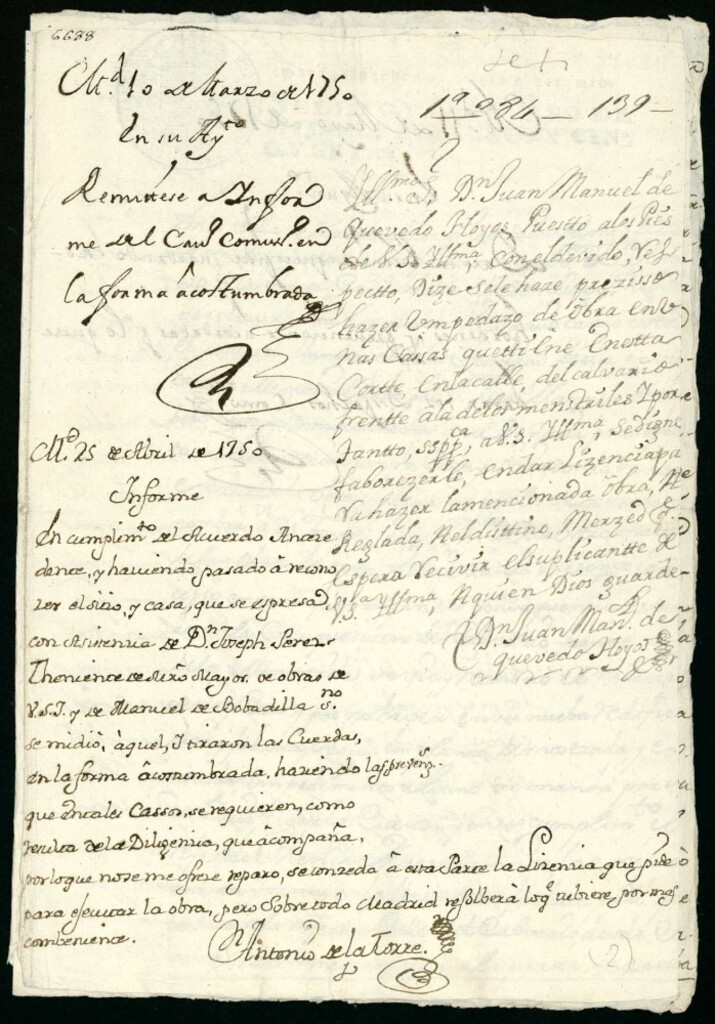 6688
M.d 10 de Marzo de 1750
En su Ay.to
Remittese a Infor
me del Cav.o Comis.o en
la forma âcostumbrada
1ª 0 84 — 139 —
Ill.mo S.r
Dn. Juan Manuel de
Quevedo Hoyos, Puestto alos Pies
de V.S. Illma, con el devido, Res
pectto, Dize sele haze prezisso
hazer Vnpedazo de Obra en V
nas Cassas quetti Ene Enestta
Cortte Enlacalle, del calvario
frentte ala delos menstriles I por
tantto, sspp.ca a V.S. Illma, sedigne
faborezerle, endar Lizencia pa
ra hazer lamencionada Obra, A
Reglada, Neldisttino, Merzed q.e
Espera Recivir elsuplicantte de
V.S. Yllma, Aquien Dios guarde
Dn. Juan Man.l de
quevedo Hoyos
M.d 25 de Abril de 1750
Informe
En cumplim.to del Acuerdo Antece
dente, y haviendo pasado â recono
zer el sitio, y casa, que se espresa
con Asistencia de Dn. Joseph Perez
Theniente de Mrô Mayor de obras de
V.S.I. y de Manuel de Bobadilla s.no
se midiò, àquel, I tiraron las Cuerdas,
en la forma âcostumbrada, haziendo las prevenz.s
que en tales Cassos, se requieren, como
resulta de la Diligencia, que âcompaña,
por loque nose me ofreze reparo, se conzeda â esta Parte la Lizencia que pide
para ejecutar la obra, pero Sobre todo Madrid resolberà loq.e tubiere, por mas
combeniente.
Antonio de la Torre
(2)